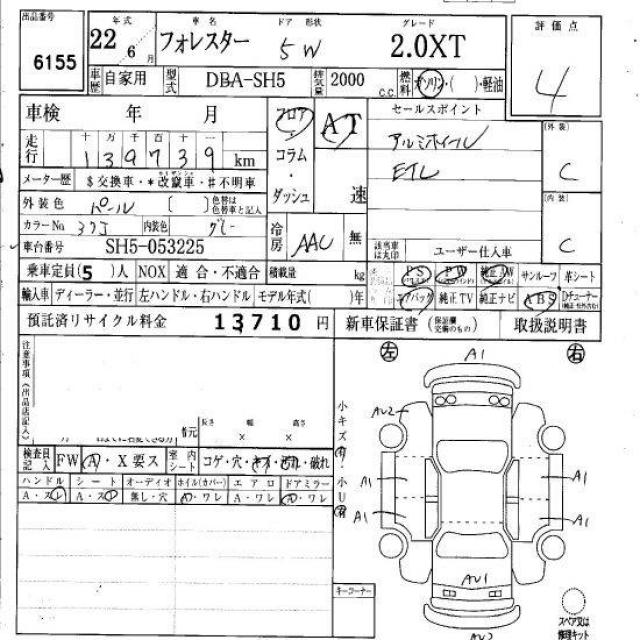 出品番号 年式 車名 ドア 形状 グレード 評価点
6155 22 6月 フォレスター 5W 2.0XT 4
車歴 自家用 型式 DBA-SH5 排気量 2000 c.c. 燃料 ガソリン・( )・軽油
車検 年 月 フロア AT セールスポイント
走行 十 万 千 百 十 一 アルミホイール (外装)
139739 km コラム ETC C
メーター歴 $交換車・*改竄車・#不明車 ダッシュ 速 (内装)
外装色 パール ( ) 色替は色替車と記入 C
カラーNo 37J 内装色 グレー 冷房 AAC 無
車台番号 SH5-053225 該当車は丸印 ユーザー仕入車
乗車定員(5)人 NOX 適合・不適合 積載量 kg PS PW 純正AW サンルーフ 革シート
輸入車 ディーラー・並行 左ハンドル・右ハンドル モデル年式( )年 エアバッグ 純正TV 純正ナビ ABS
預託済リサイクル料金 13710 円 新車保証書 (保証欄完備のもの) 取扱説明書
注意事項(出品店記入) 左 A1 右
小キズ
AU2
諸元 長さ 幅 高さ
× ×
検査員記入 FW A・X要ス 室内シート コゲ・穴・キズ・汚れ・破れ
ハンドル シート オーディオ ホイル(カバー) エアロ ドアミラー 小U
A・スレ A・スレ 無し・穴 A・ワレ A・ワレ A・ワレ
A1 A1
A1 A1
AU1
キーコーナー
AU2
スペア又は修理キット